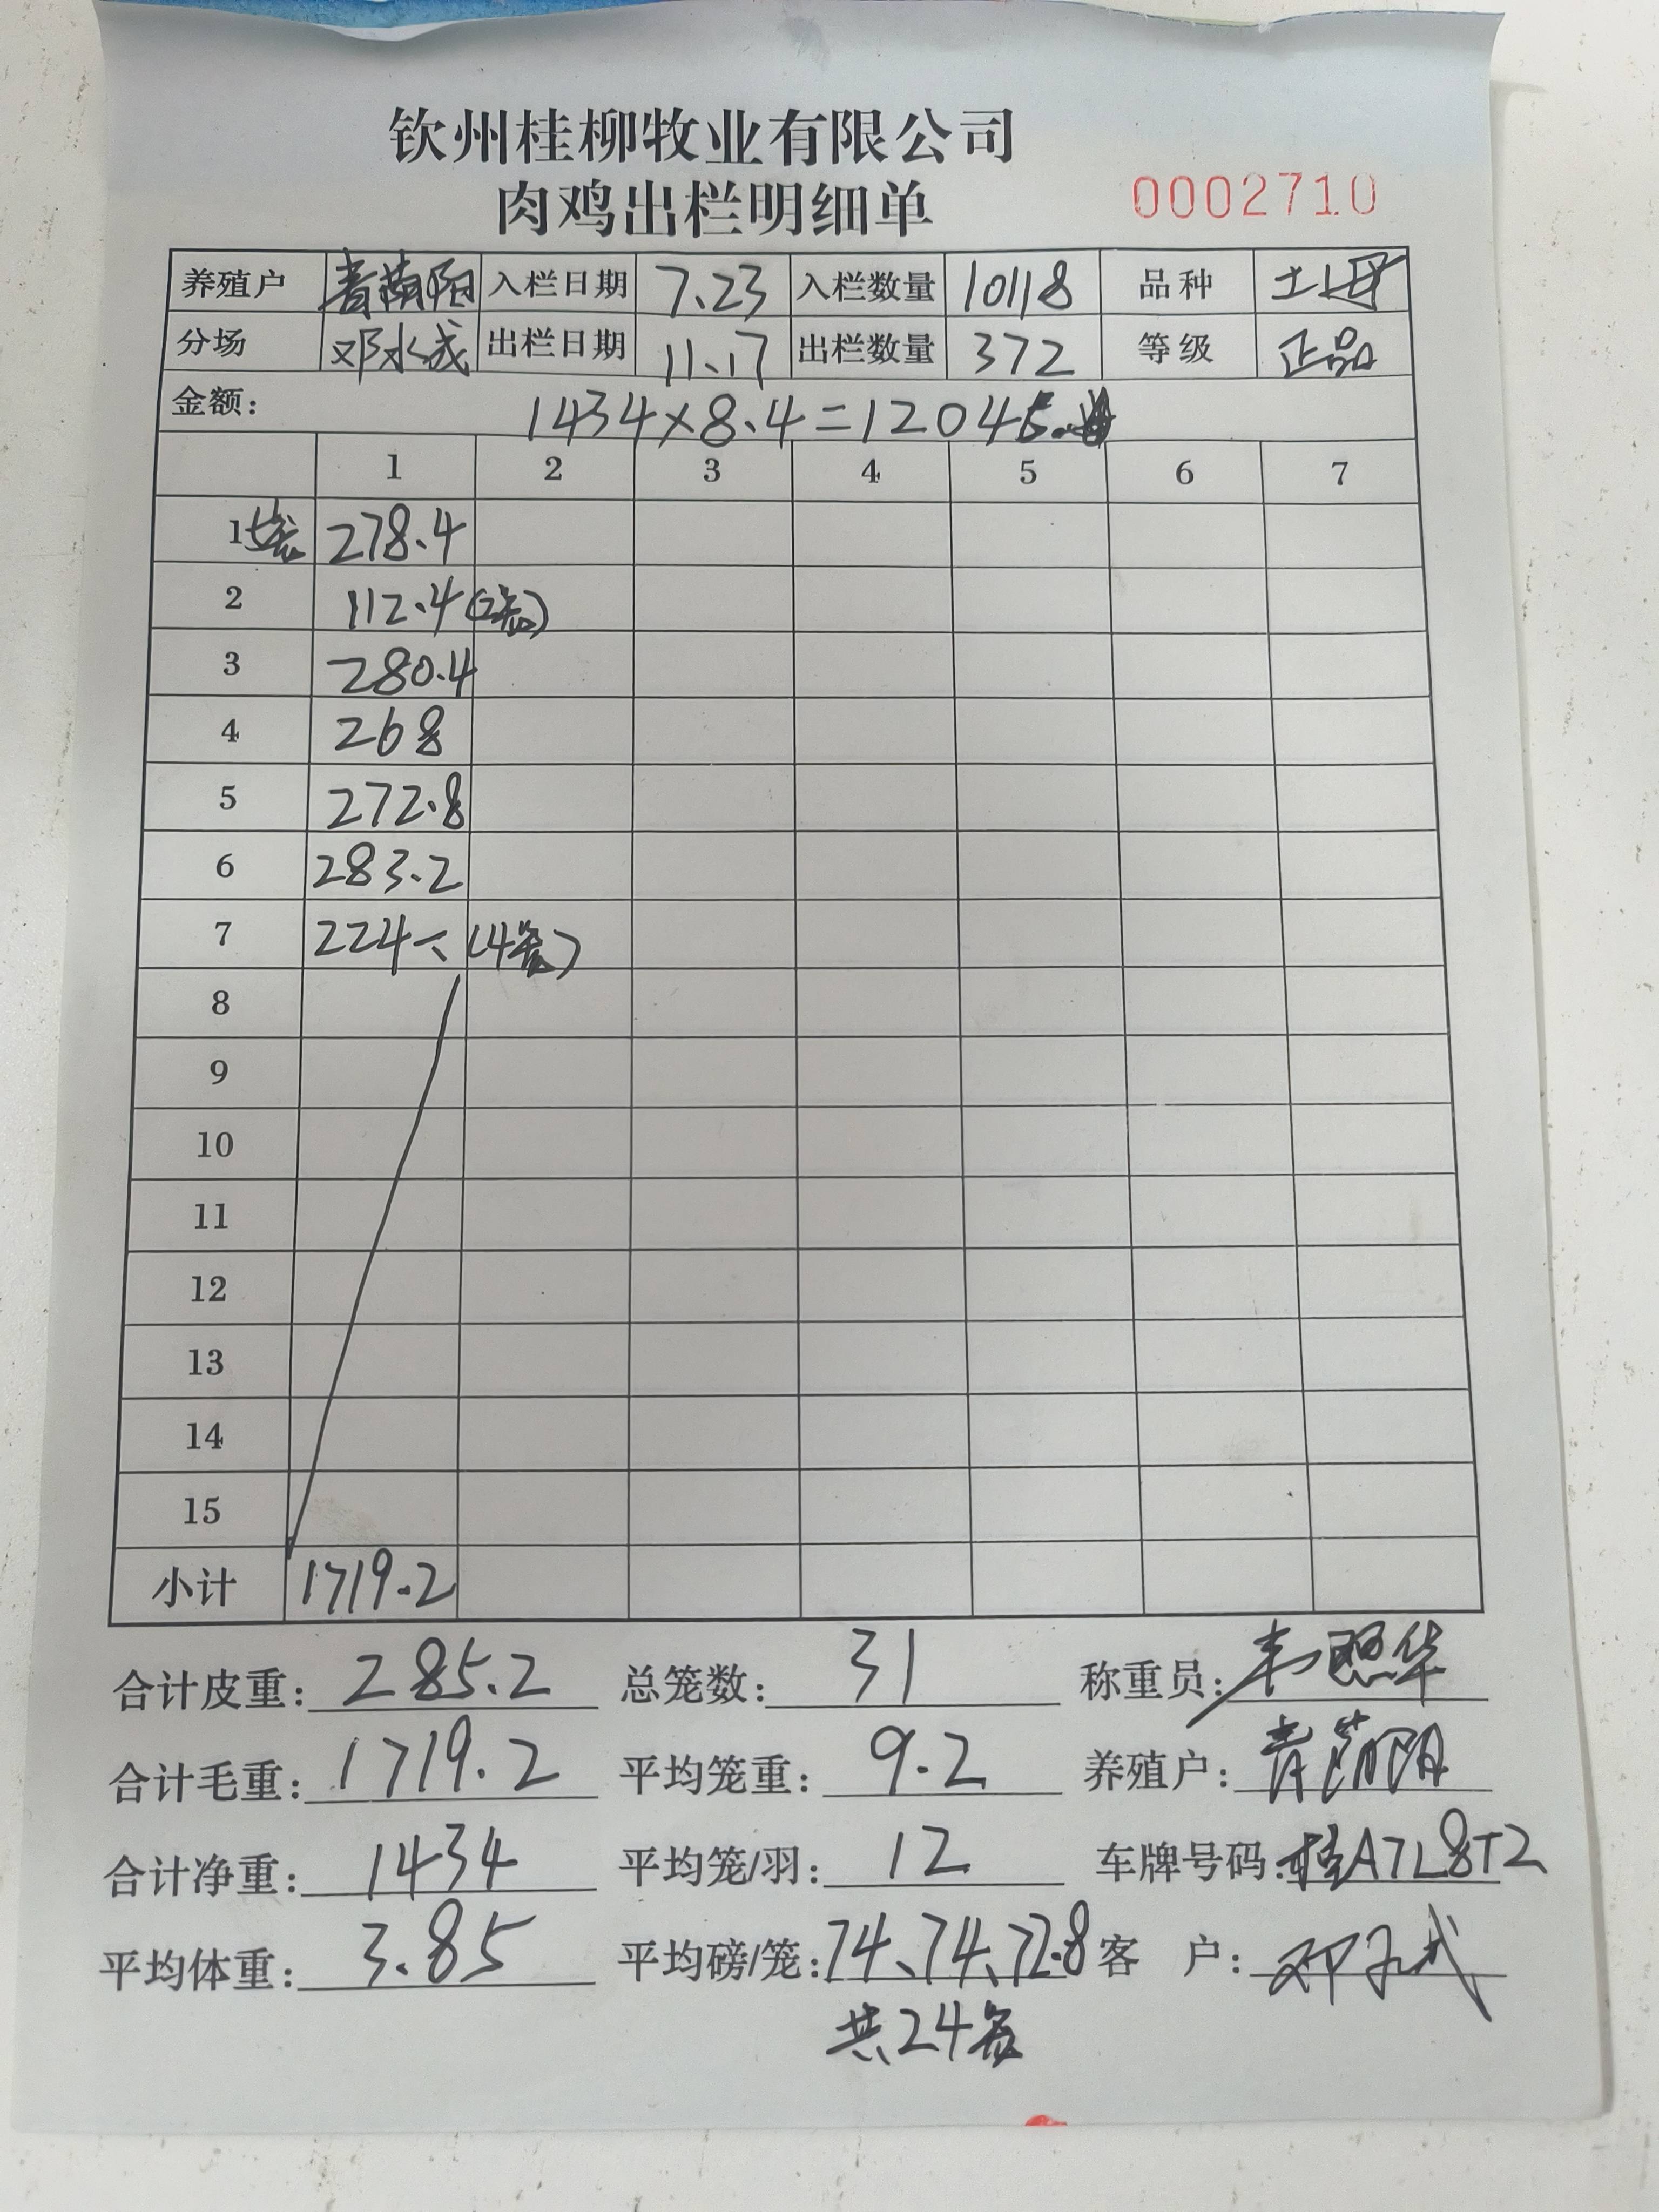 钦州桂柳牧业有限公司
肉鸡出栏明细单 0002710
养殖户 入栏日期 7.23 入栏数量 10118 品种 土
分场 邓水成 出栏日期 11.17 出栏数量 372 等级 正品
金额: 1434×8.4=12045.
1 2 3 4 5 6 7
1 278.4
2 112.4 (2笼)
3 280.4
4 268
5 272.8
6 283.2
7 224 (4笼)
8
9
10
11
12
13
14
15
小计 1719.2
合计皮重: 285.2 总笼数: 31 称重员: 韦熙华
合计毛重: 1719.2 平均笼重: 9.2 养殖户:
合计净重: 1434 平均笼/羽: 12 车牌号码: 桂A7L8T2
平均体重: 3.85 平均磅/笼: 74、74、72.8 客 户: 邓
共24笼